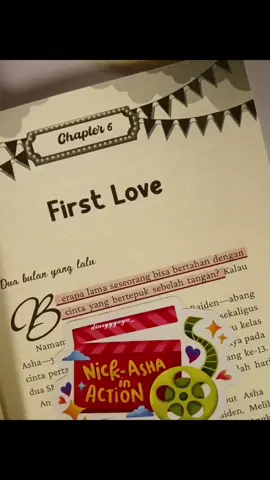 Chapter 6
First Love
Dua bulan yang lalu
Berapa lama seseorang bisa bertahan dengan
cinta yang bertepuk sebelah tangan? Kalau
Naman
aiden—abang
sekaligus
Asha—y
u kelas
cinta per
nya pada
dua S
ng ke-13,
ah hari
out Asha
iden. Meli
diaryyyaya_
NICK-ASHA
in
ACTION